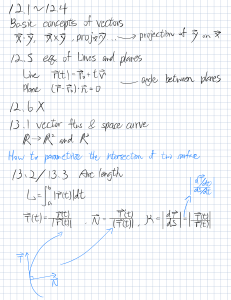 12.1~12.4
Basic concepts of vectors
x⃗·y⃗, x⃗×y⃗, proj y⃗ ... → projection of y⃗ on x⃗
12.5 eqs of lines and planes
Line r⃗(t)=r⃗₀+tv⃗
Plane (r⃗-r⃗₀)·n⃗=0
angle between planes
12.6 X
13.1 vector fns & space curve
R→R² and R³
How to parametrize the intersection of two surface
13.2/13.3 Arc length
L=∫ₐᵇ|r⃗'(t)|dt
|dT⃗/dt / ds/dt|
T⃗(t)=r⃗'(t)/|r⃗'(t)|, N⃗=T⃗'(t)/|T⃗'(t)|, K=|dT⃗/ds|=|T⃗'(t)/r⃗'(t)|
T⃗
N⃗